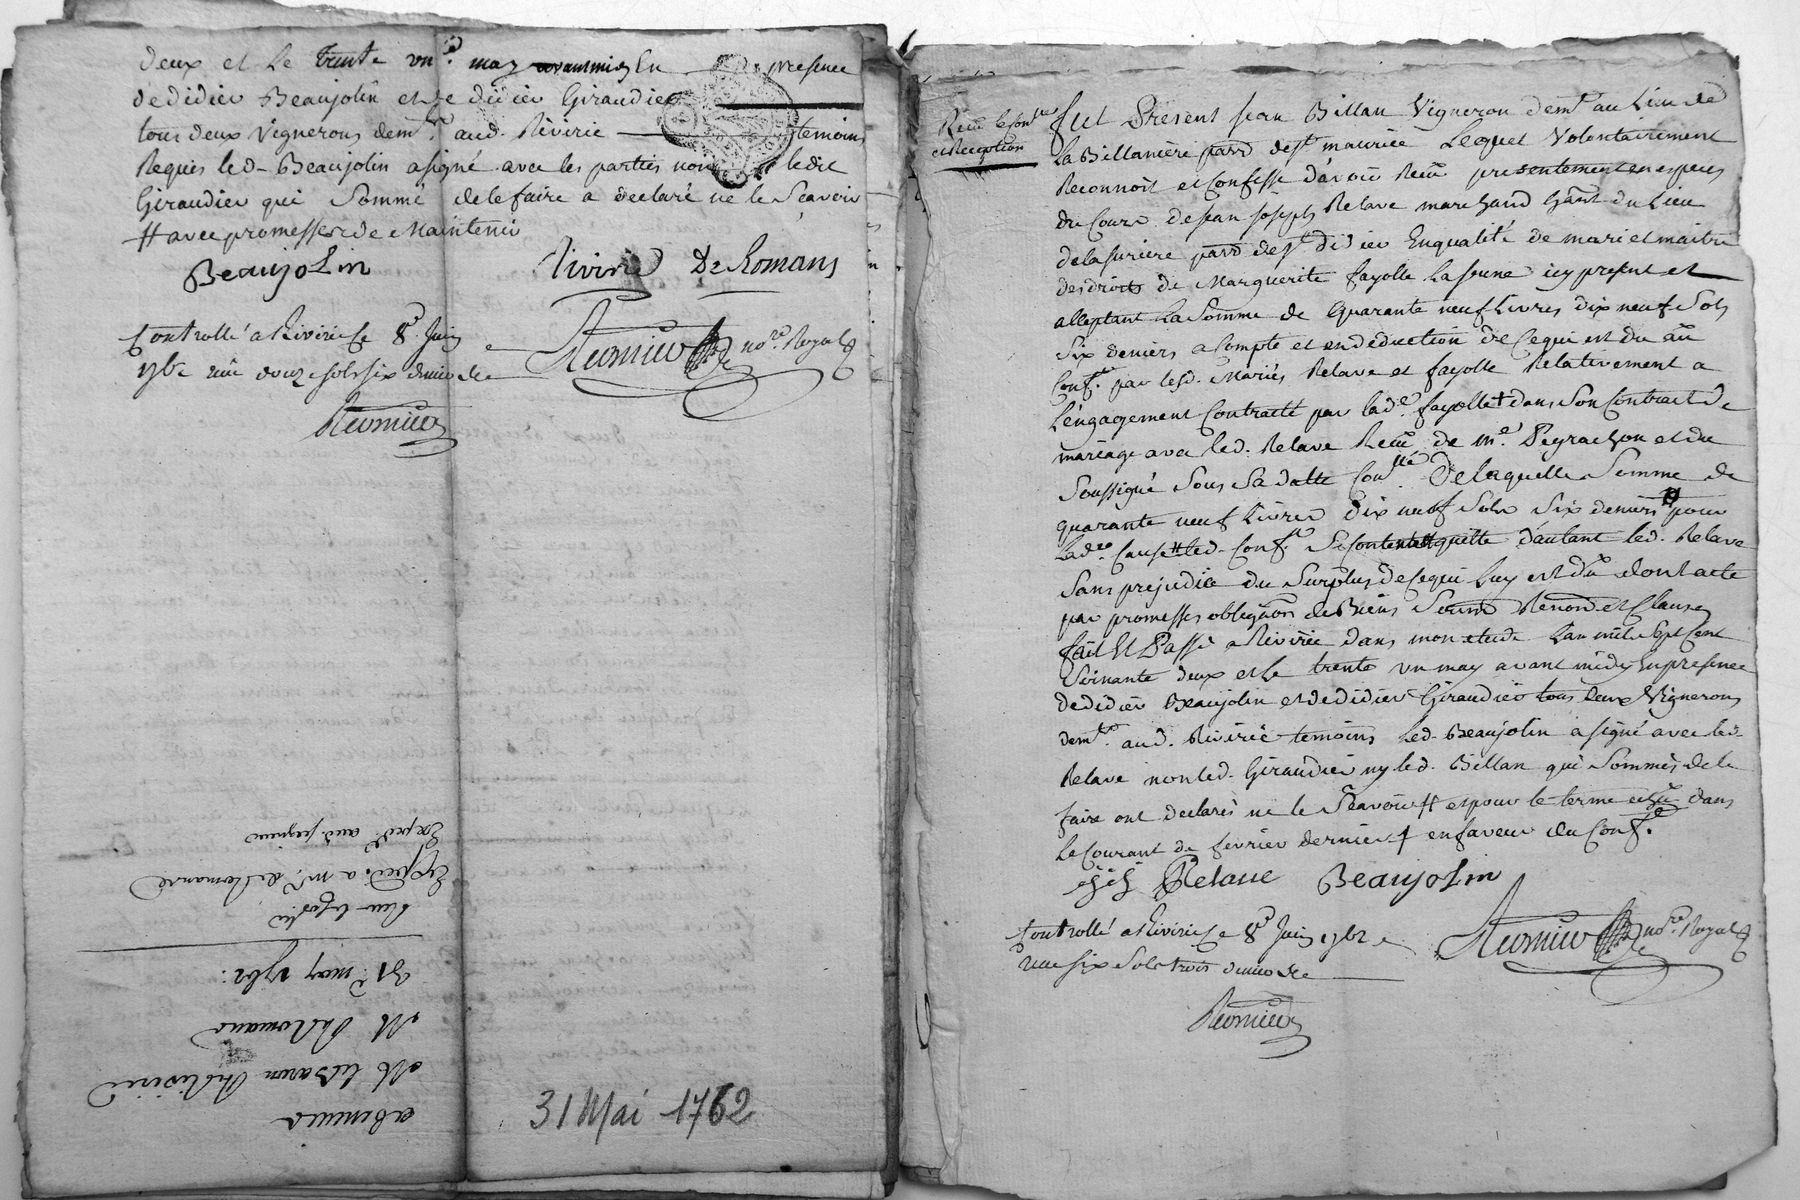 deux et le trente un.e may avant midy En presence
de didier Beaujolin et de didier Giraudier
tous deux vignerons dem.ts aud. Riverie temoins
Requis led. Beaujolin a signé avec les parties non ledit
Giraudier qui Sommé de le faire a declaré ne le Sçavoir
# avec promesses de Maintenir
Beaujolin
Riverie De Romans
Controllé a Riverie le 8.e Juin
1762 reçu douze sols six deniers
no.re Royal
31.e may 1762.
M. DeRomans
M. le Baron De Riverie
abenevis
31 Mai 1762
et Reception
fut Present jean Billan Vigneron dem.t au Lieu de
La Billanière parr. de s.t maurice Lequel Volontairement
Reconnoit et Confesse d'avoir Reçu presentement en especes
du Cours de jean joseph Relave marchand hant. du Lieu
de la furiere parr. de s.t didier En qualité de mari et maitre
des droits de Marguerite fayolle la jeune icy present et
acceptant La Somme de quarante neuf Livres dix neuf Sols
Six deniers a Compte et en deduction de ce qui est du au
Conf.t par lesd. Mariés Relave et fayolle Relativement a
L'engagement Contracté par lad.e fayolle + dans Son Contract de
mariage avec led. Relave Reçu de m.e Peyrachon et du
Soussigné Sous Sa datte Con.llé De laquelle Somme de
quarante neuf Livres dix neuf Sols Six deniers pour
Lad.e Cause # led. Conf.t Se Contente et quitte d'autant led. Relave
Sans prejudice du Surplus de ce qui Luy est dû dont acte
par promesses obligãons de Biens Soumõ Renonõ et Clauses
fait Et Passé a Riverie dans mon etude L'an mil Sept Cent
Soixante deux et Le trente un may avant midy En presence
de didier Beaujolin et de didier Giraudier tous deux Vignerons
dem.ts aud. Riverie temoins Led. Beaujolin a signé avec led.
Relave non led. Giraudier ny led. Billan qui Sommés de le
faire ont declarés ne le Sçavoir # et pour le terme echu dans
Le Courant de fevrier dernier + en faveur du Conf.t
j j Relave Beaujolin
Controllé a Riverie le 8.e Juin 1762
reçu six Sols trois deniers
no.re Royal